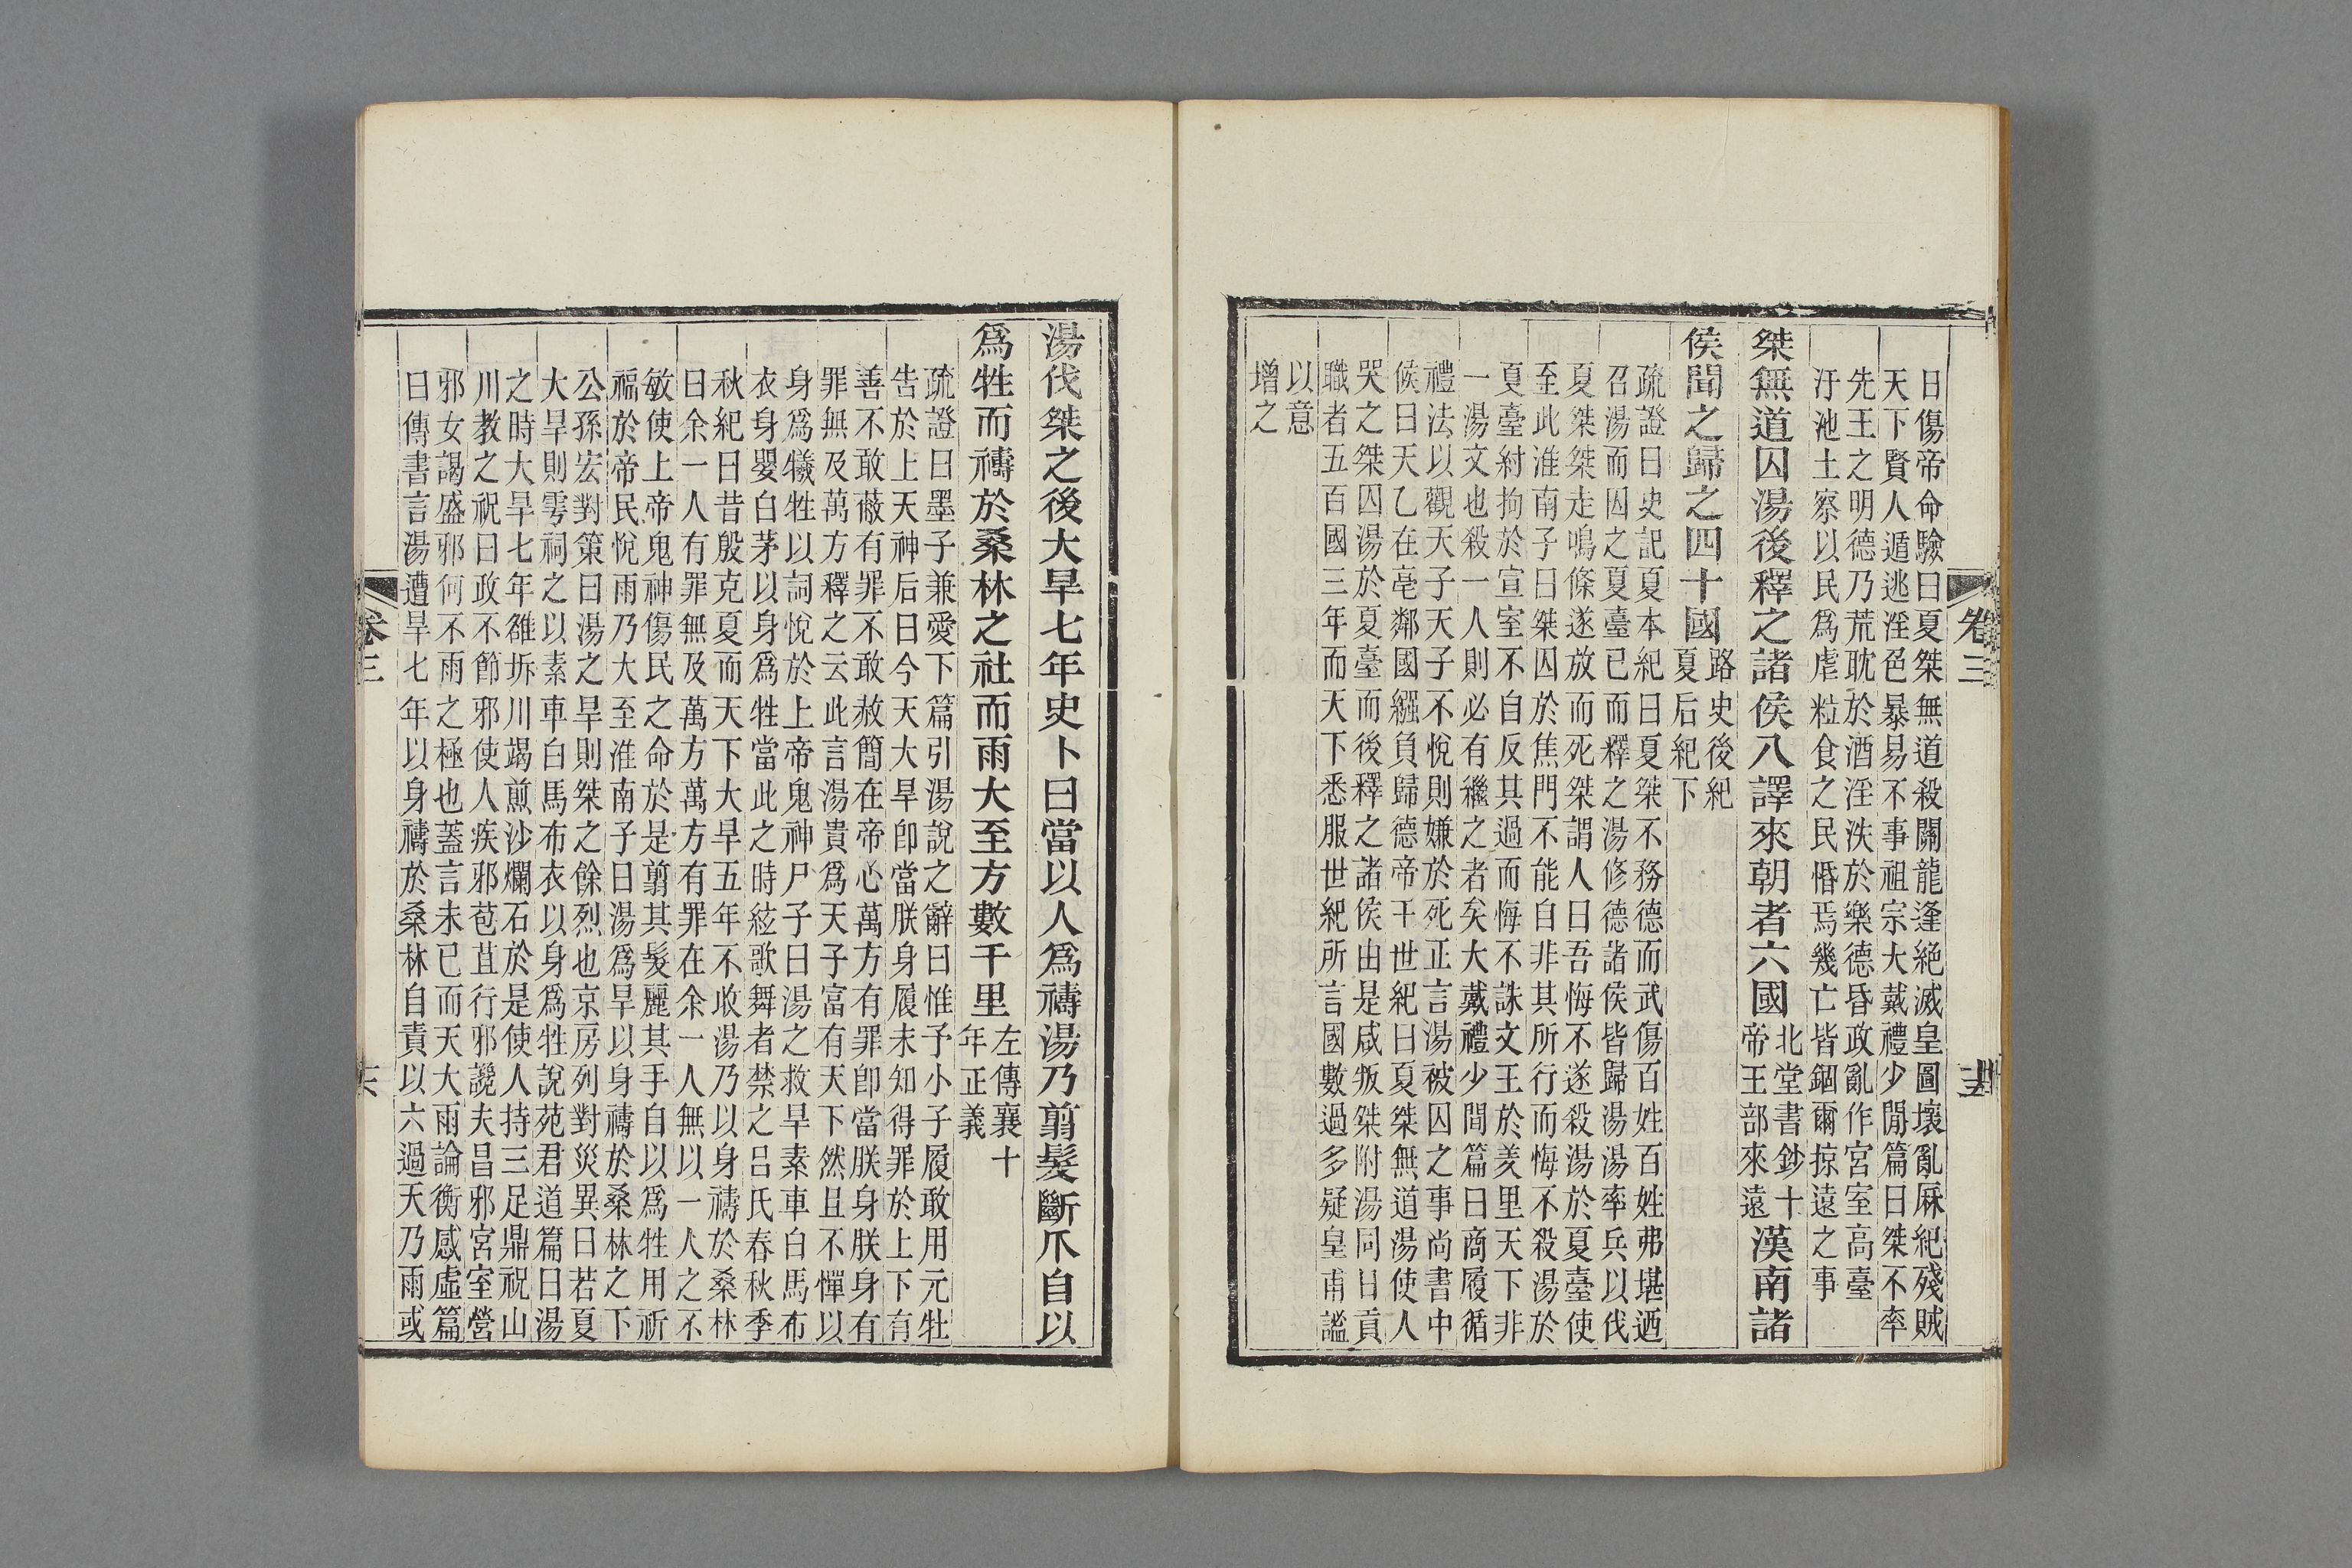 日傷帝命驗曰夏桀無道殺關龍逢絕滅皇圖壞亂厤紀殘賊
天下賢人遁逃淫色暴易不事祖宗大戴禮少閒篇曰桀不率
先王之明德乃荒耽於酒淫泆於樂德昏政亂作宮室高臺
汙池土察以民爲虐粒食之民惛焉幾亡皆錮爾掠遠之事
桀無道囚湯後釋之諸侯八譯來朝者六國北堂書鈔十帝王部來遠漢南諸
侯聞之歸之四十國路史後紀夏后紀下
疏證曰史記夏本紀曰夏桀不務德而武傷百姓百姓弗堪迺
召湯而囚之夏臺已而釋之湯修德諸侯皆歸湯湯率兵以伐
夏桀桀走鳴條遂放而死桀謂人曰吾悔不遂殺湯於夏臺使
至此淮南子曰桀囚於焦門不能自非其所行而悔不殺湯於
夏臺紂拘於宣室不自反其過而悔不誅文王於羑里天下非
一湯文也殺一人則必有繼之者矣大戴禮少閒篇曰商履循
禮法以觀天子天子不悅則嫌於死正言湯被囚之事尚書中
候曰天乙在亳鄰國繦負歸德帝王世紀曰夏桀無道湯使人
哭之桀囚湯於夏臺而後釋之諸侯由是咸叛桀附湯同日貢
職者五百國三年而天下悉服世紀所言國數過多疑皇甫謐
以意
增之
卷三
湯伐桀之後大旱七年史卜曰當以人爲禱湯乃翦髮斷爪自以
爲牲而禱於桑林之社而雨大至方數千里左傳襄十年正義
疏證曰墨子兼愛下篇引湯說之辭曰惟予小子履敢用元牡
告於上天神后曰今天大旱卽當朕身履未知得罪於上下有
善不敢蔽有罪不敢赦簡在帝心萬方有罪卽當朕身朕身有
罪無及萬方釋之云此言湯貴爲天子富有天下然且不憚以
身爲犧牲以詞悅於上帝鬼神尸子曰湯之救旱素車白馬布
衣身嬰白茅以身爲牲當此之時絃歌舞者禁之呂氏春秋季
秋紀曰昔殷克夏而天下大旱五年不收湯乃以身禱於桑林
曰余一人有罪無及萬方萬方有罪在余一人無以一人之不
敏使上帝鬼神傷民之命於是翦其髮麗其手自以爲牲用祈
福於帝民悅雨乃大至淮南子曰湯爲旱以身禱於桑林之下
公孫宏對策曰湯之旱則桀之餘烈也京房列對災異曰若夏
大旱則雩祠之以素車白馬布衣以身爲牲說苑君道篇曰湯
之時大旱七年雒坼川竭煎沙爛石於是使人持三足鼎祝山
川教之祝曰政不節邪使人疾邪苞苴行邪讒夫昌邪宮室營
邪女謁盛邪何不雨之極也蓋言未已而天大雨論衡感虛篇
曰傳書言湯遭旱七年以身禱於桑林自責以六過天乃雨或
卷三